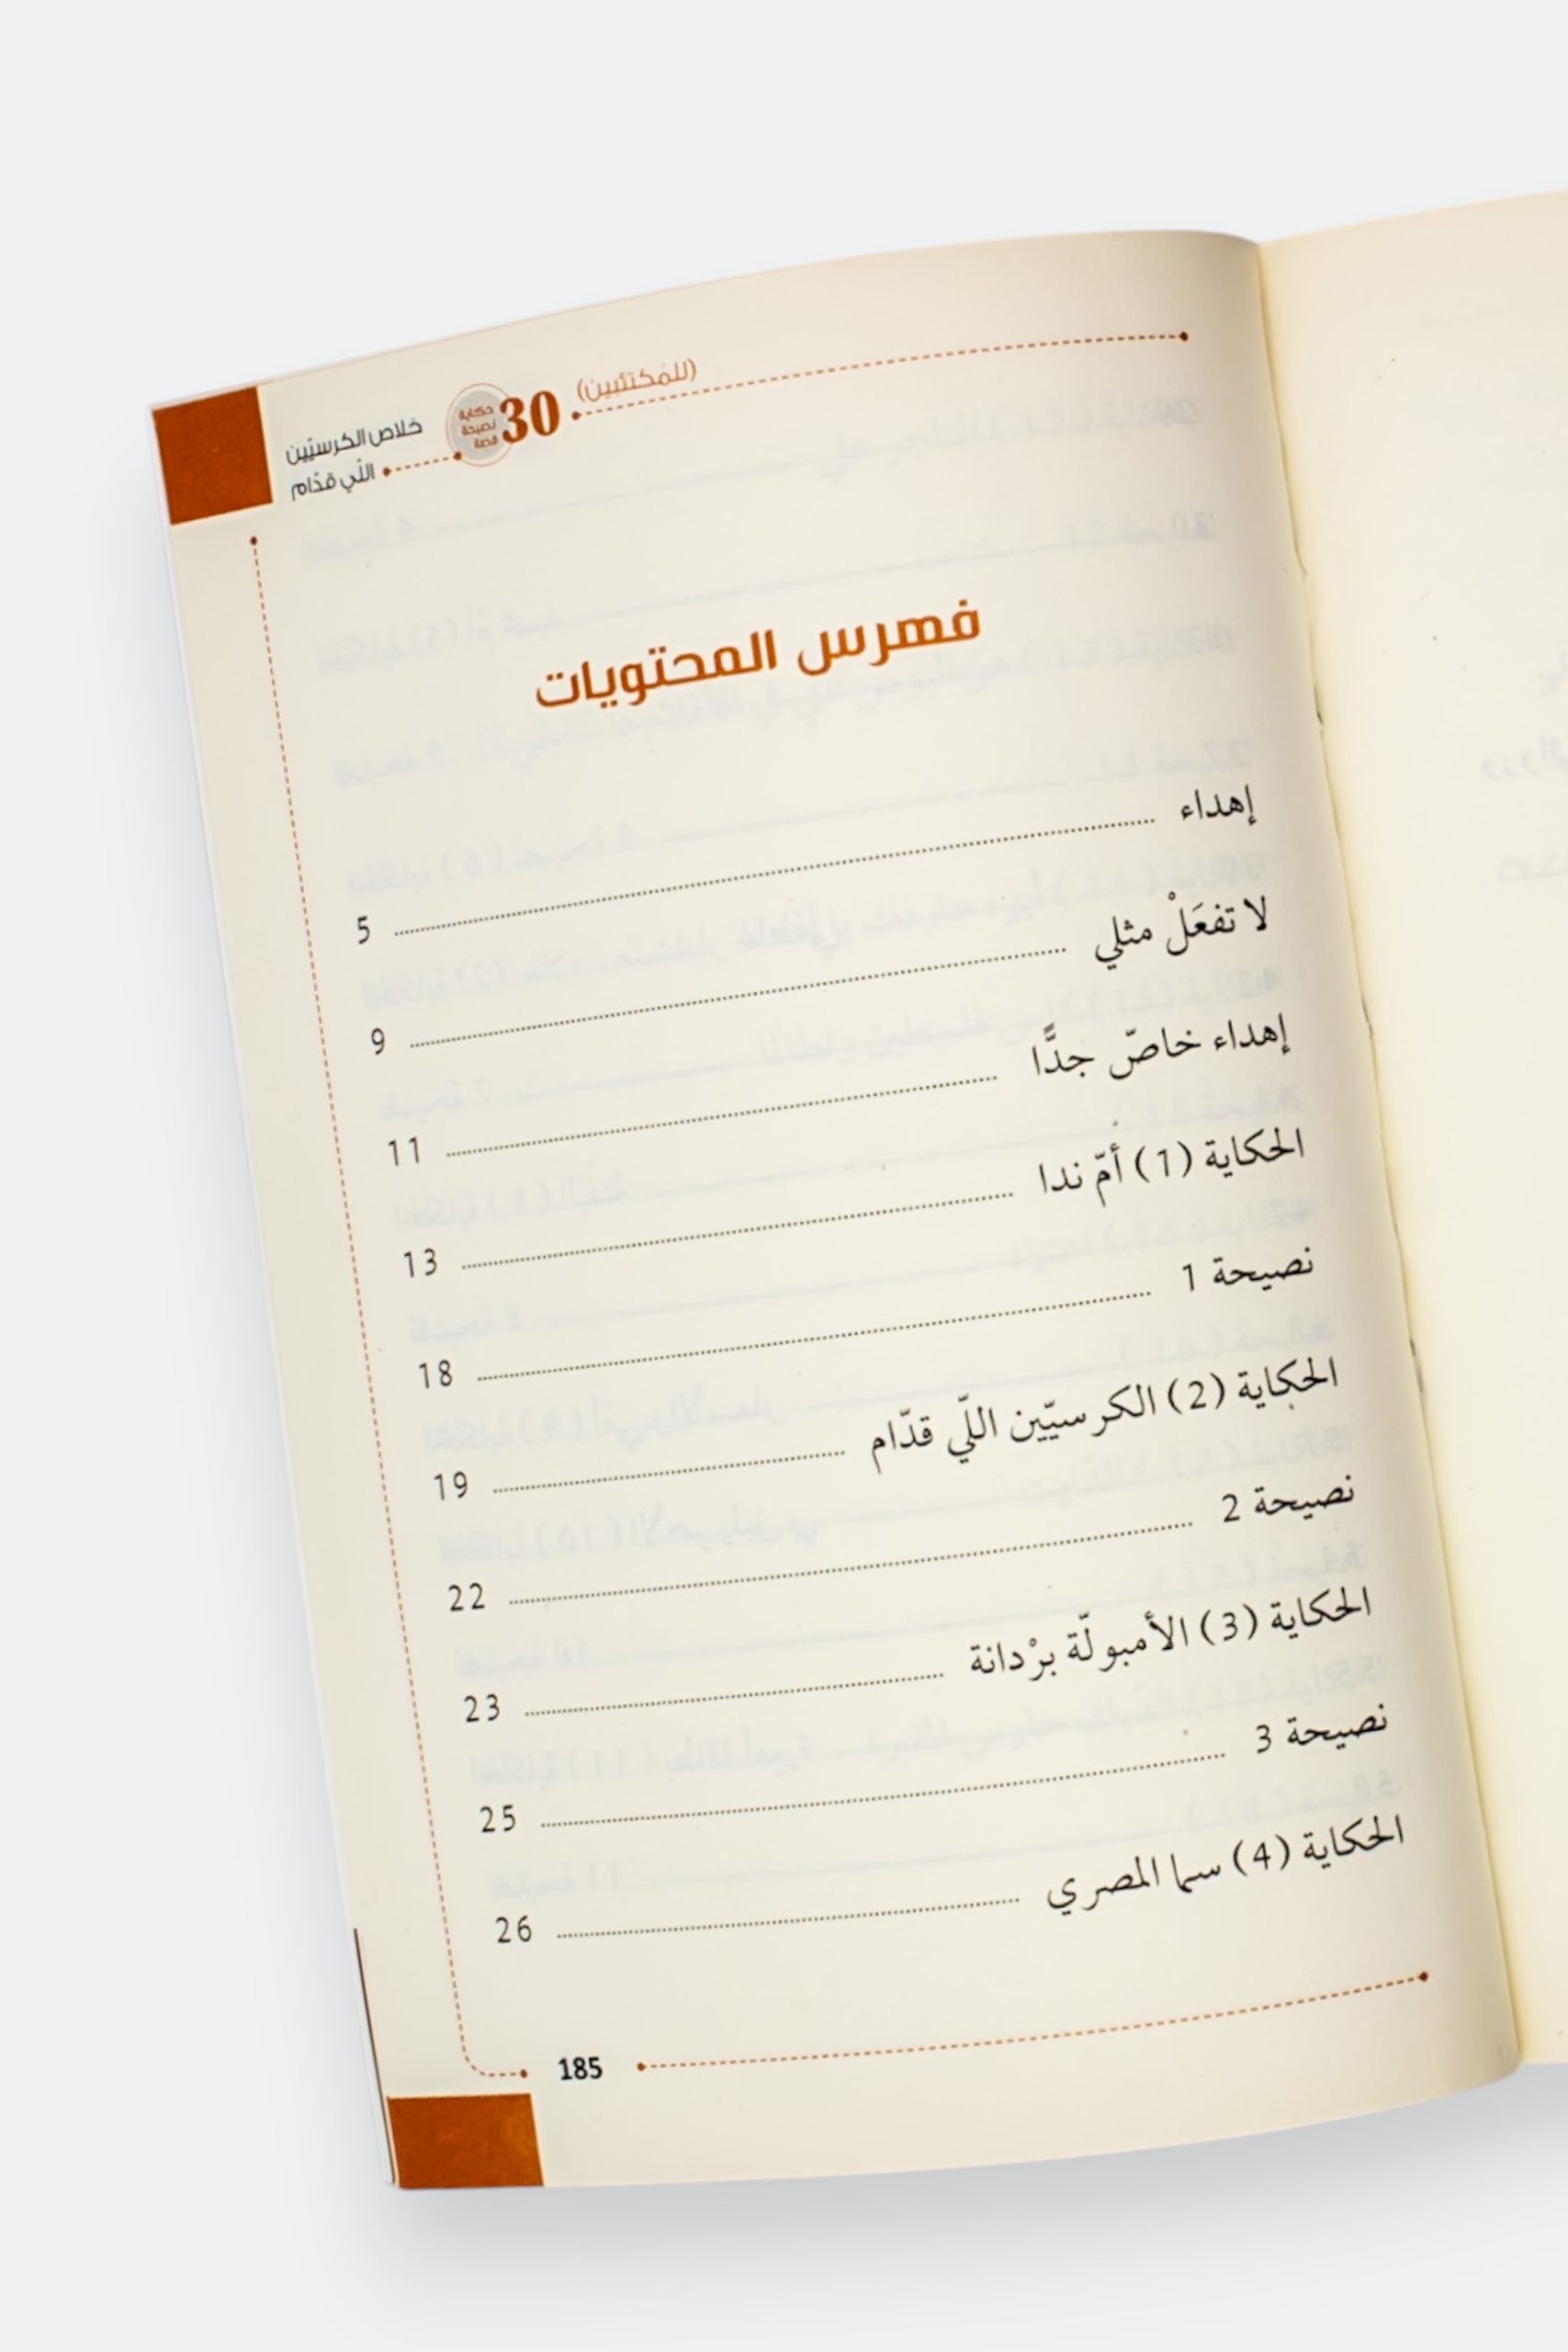 (للمُكتئبين)
30
حكاية
نصيحة
قصة
خلاص الكرسيّين
اللّي قدّام
فهرس المحتويات
إهداء ........ 5
لا تفعَلْ مثلي ........ 9
إهداء خاصّ جدًّا ........ 11
الحكاية (1) أمّ ندا ........ 13
نصيحة 1 ........ 18
الحكاية (2) الكرسيّين اللّي قدّام ........ 19
نصيحة 2 ........ 22
الحكاية (3) الأمبولّة برْدانة ........ 23
نصيحة 3 ........ 25
الحكاية (4) سما المصري ........ 26
185